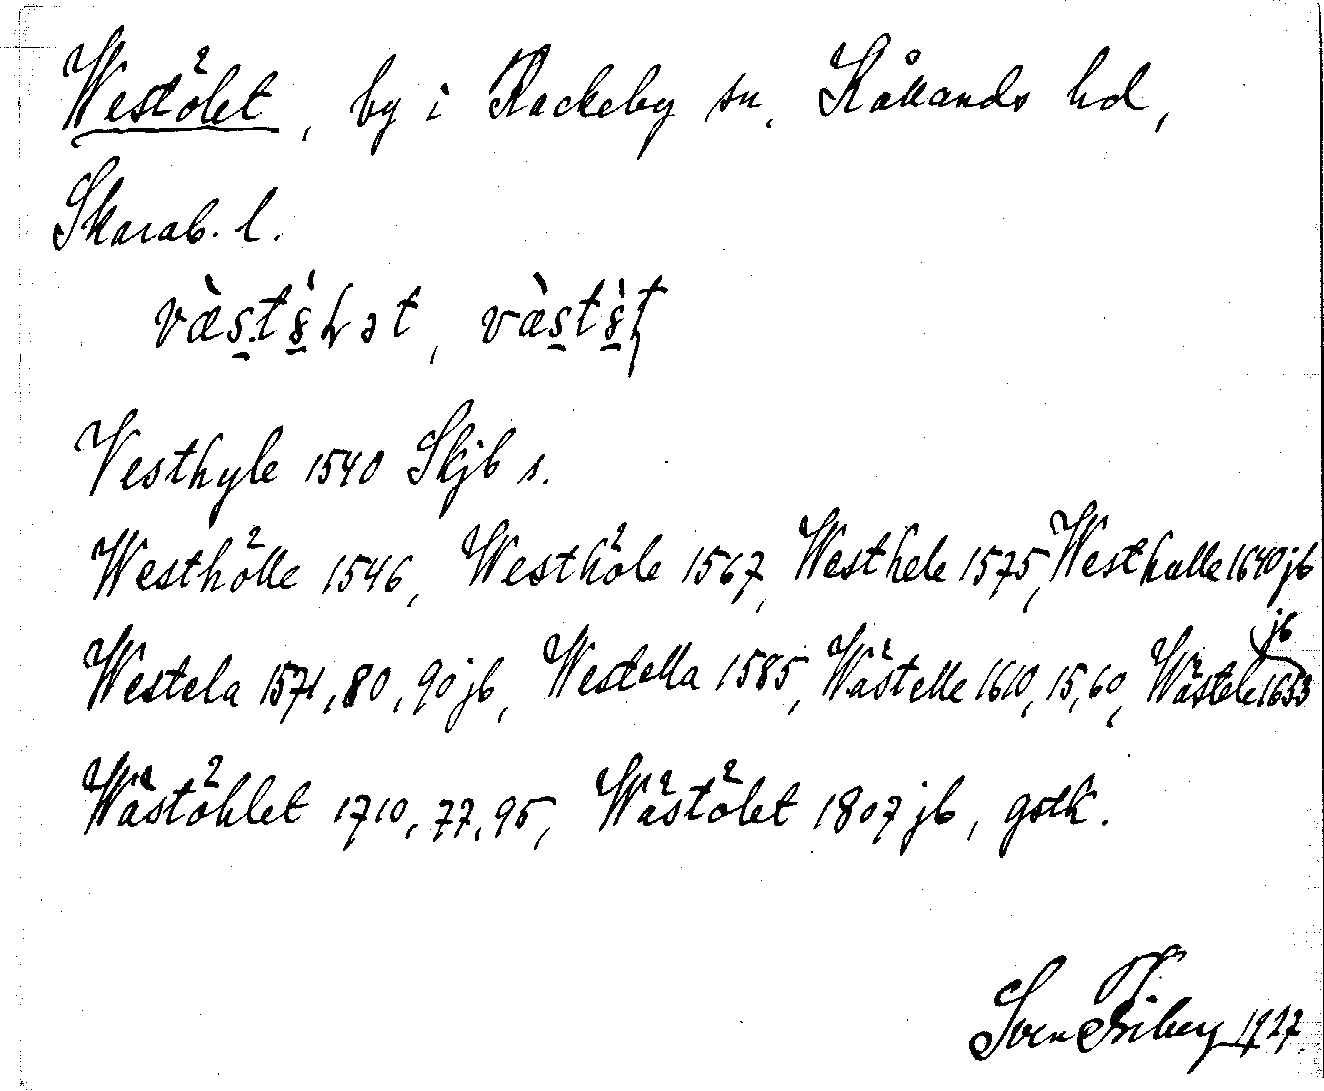 Westölet, by i Rackeby sn, Kållands hd,
Skarab. l.
Vesthyle 1540 Skjb s.
Westhölle 1546, Westhöle 1567, Westhele 1575, Westhalle 1640 jb
Westela 1571, 80, 90 jb, Westella 1585, Wästelle 1610, 15, 60, Wästele 1653 jb
Wästöhlet 1710, 77, 95, Wästölet 1807 jb, gstk.
Sven Friberg 1927